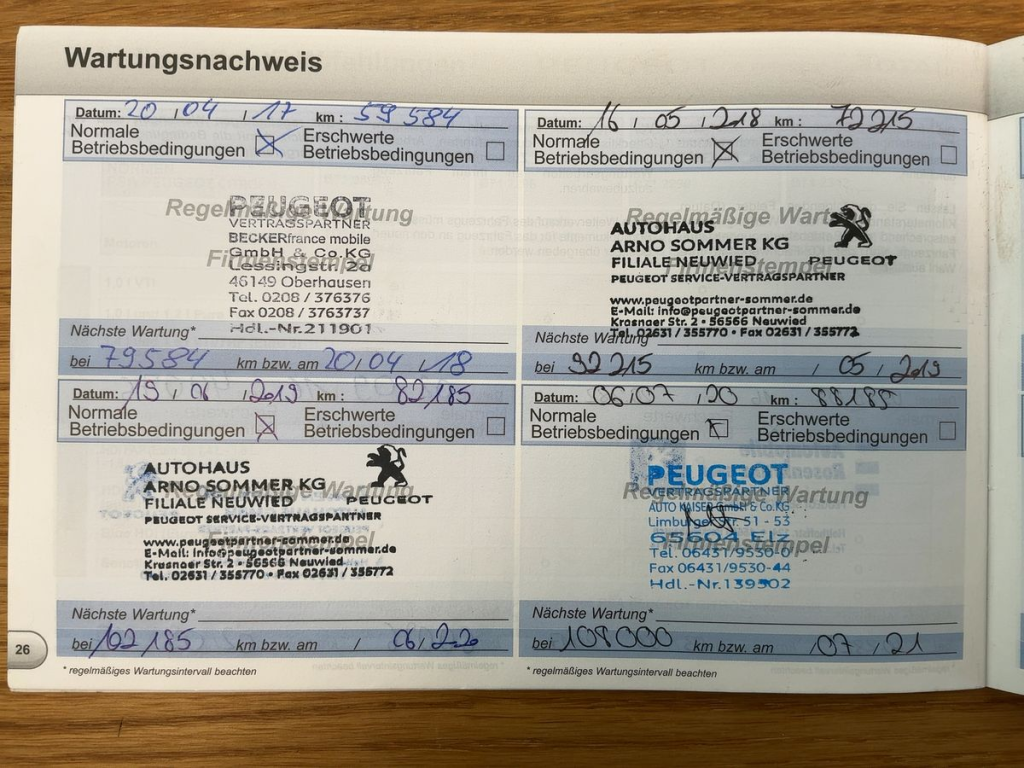 Wartungsnachweis
Datum: 20 , 04 , 17 km : 59 584
Normale Betriebsbedingungen Erschwerte Betriebsbedingungen
Regelmäßige Wartung
PEUGEOT
VERTRAGSPARTNER
BECKERfrance mobile
GmbH & Co.KG
Firmenstempel
Lessingstr. 2d
46149 Oberhausen
Tel. 0208 / 376376
Fax 0208 / 3763737
Hdl.-Nr.211901
Nächste Wartung*
bei 79584 km bzw. am 20, 04 , 18
Datum: 16 , 05 , 218 km : 72215
Normale Betriebsbedingungen Erschwerte Betriebsbedingungen
Regelmäßige Wartung
AUTOHAUS
ARNO SOMMER KG
FILIALE NEUWIED PEUGEOT
Firmenstempel
PEUGEOT SERVICE-VERTRAGSPARTNER
www.peugeotpartner-sommer.de
E-Mail: info@peugeotpartner-sommer.de
Krasnaer Str. 2 • 56566 Neuwied
Tel. 02631 / 355770 • Fax 02631 / 355772
Nächste Wartung
bei 92215 km bzw. am / 05 / 2019
Datum: 19 , 06 , 2019 km : 82185
Normale Betriebsbedingungen Erschwerte Betriebsbedingungen
AUTOHAUS
ARNO SOMMER KG
Regelmäßige Wartung
FILIALE NEUWIED PEUGEOT
PEUGEOT SERVICE-VERTRAGSPARTNER
www.peugeotpartner-sommer.de
Firmenstempel
E-Mail: info@peugeotpartner-sommer.de
Krasnaer Str. 2 • 56566 Neuwied
Tel. 02631 / 355770 • Fax 02631 / 355772
Nächste Wartung*
bei 102185 km bzw. am / 06 , 220
* regelmäßiges Wartungsintervall beachten
Datum: 06,07 , 20 km : 88185
Normale Betriebsbedingungen Erschwerte Betriebsbedingungen
PEUGEOT
Regelmäßige Wartung
VERTRAGSPARTNER
AUTO KAISER GmbH & Co.KG
Limburger Str. 51 - 53
65604 Elz
Firmenstempel
Tel. 06431/9530-0
Fax 06431/9530-44
Hdl.-Nr.139302
Nächste Wartung*
bei 108000 km bzw. am / 07 , 21
* regelmäßiges Wartungsintervall beachten
26